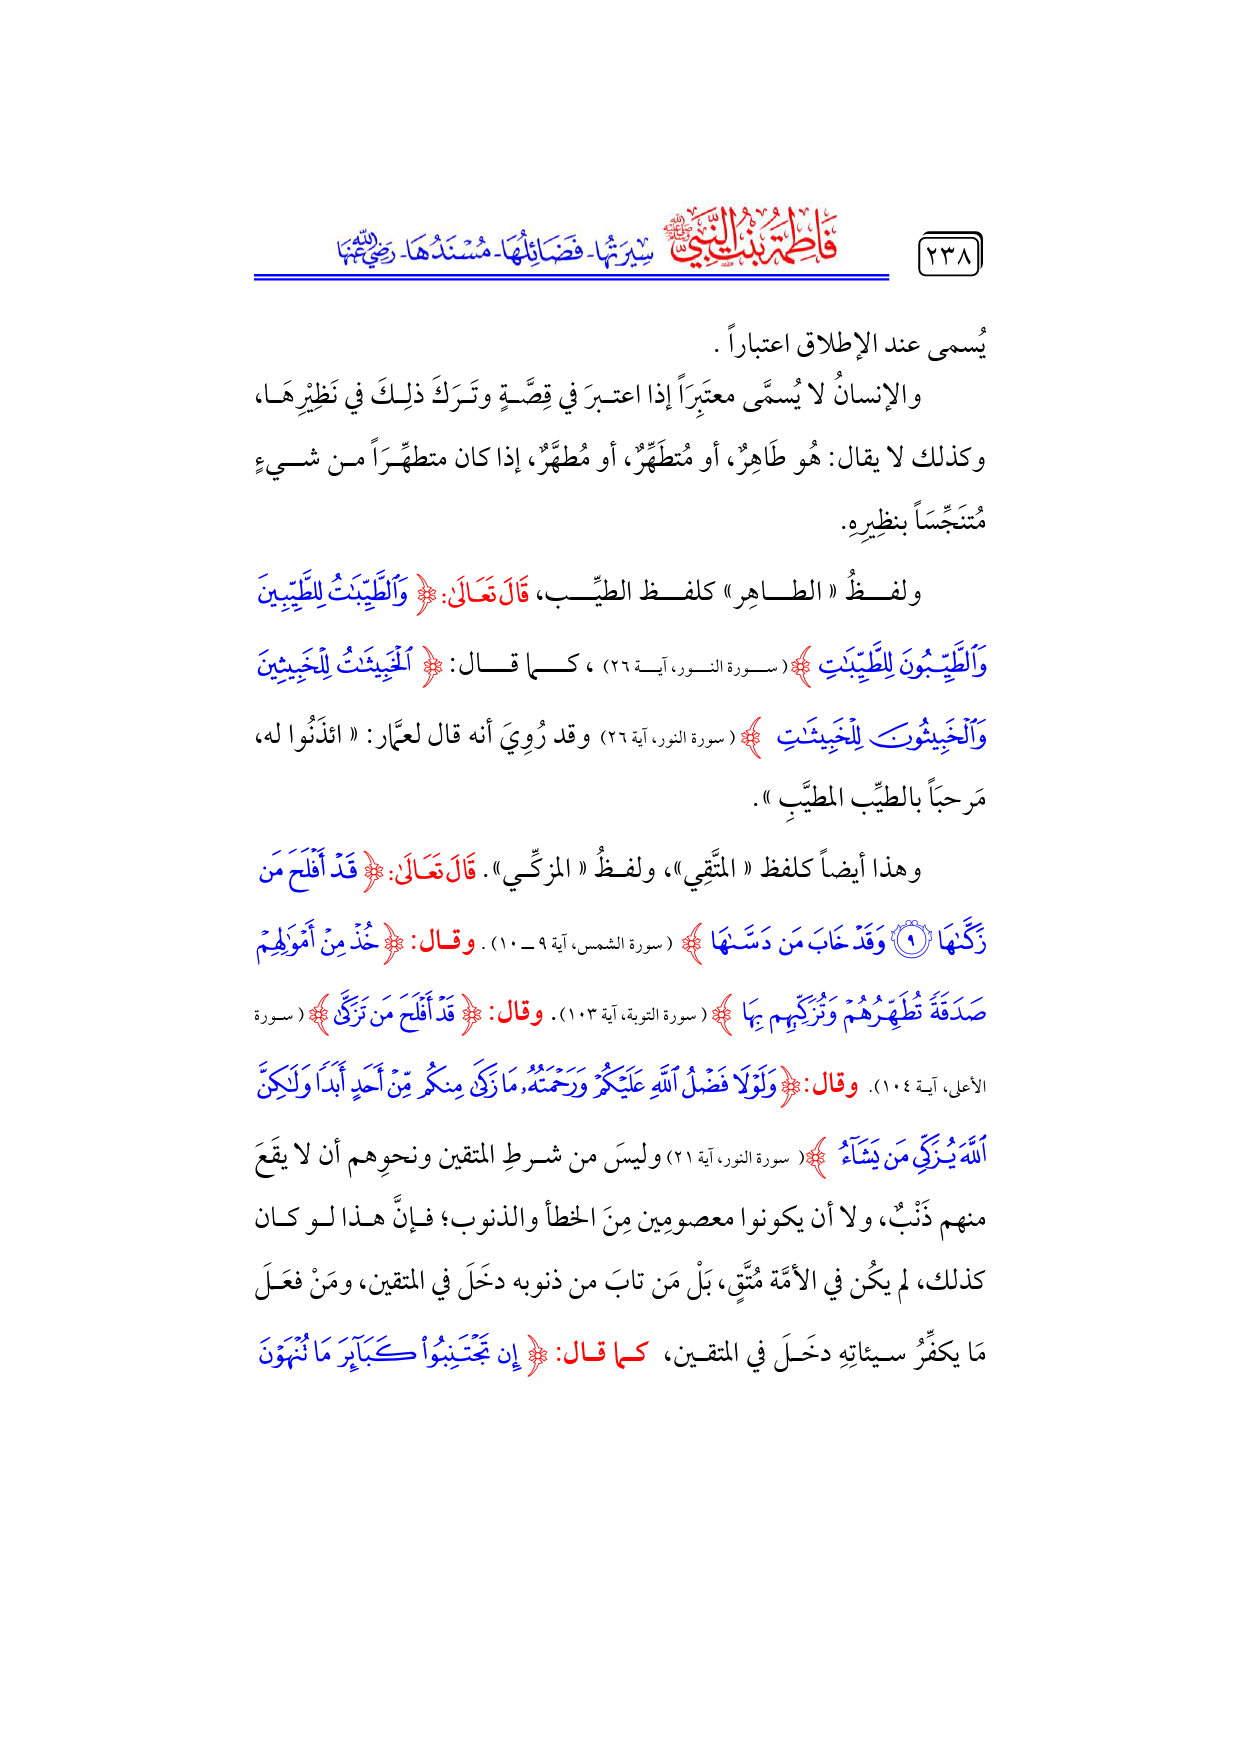 ٢٣٨
فَاطِمَةُ بِنْتُ النَّبِيِّ ﷺ سِيرَتُهَا - فَضَائِلُهَا - مُسْنَدُهَا - رَضِيَ اللهُ عَنْهَا
يُسمى عند الإطلاق اعتباراً .
والإنسانُ لا يُسمَّى معتَبِرَاً إذا اعتبرَ في قِصَّةٍ وتَرَكَ ذلِكَ في نَظِيْرِهَا،
وكذلك لا يقال: هُو طَاهِرٌ، أو مُتطَهِّرٌ، أو مُطهَّرٌ، إذا كان متطهِّرَاً من شيءٍ
مُتنَجِّسَاً بنظِيرِهِ.
ولفظُ « الطاهِر » كلفظ الطيِّب، قَالَ تَعَالَىٰ: ﴿ وَٱلطَّيِّبَٰتُ لِلطَّيِّبِينَ
وَٱلطَّيِّبُونَ لِلطَّيِّبَٰتِ ﴾ ( سورة النور، آية ٢٦) ، كما قال: ﴿ ٱلْخَبِيثَٰتُ لِلْخَبِيثِينَ
وَٱلْخَبِيثُونَ لِلْخَبِيثَٰتِ ﴾ ( سورة النور، آية ٢٦) وقد رُوِيَ أنه قال لعمَّار: « ائذَنُوا له،
مَرحبَاً بالطيِّب المطيَّبِ ».
وهذا أيضاً كلفظ « المتَّقِي»، ولفظُ « المزكِّي». قَالَ تَعَالَىٰ: ﴿ قَدْ أَفْلَحَ مَن
زَكَّىٰهَا ٩ وَقَدْ خَابَ مَن دَسَّىٰهَا ﴾ ( سورة الشمس، آية ٩ ــ ١٠) . وقال: ﴿ خُذْ مِنْ أَمْوَٰلِهِمْ
صَدَقَةً تُطَهِّرُهُمْ وَتُزَكِّيهِم بِهَا ﴾ ( سورة التوبة، آية ١٠٣). وقال: ﴿ قَدْ أَفْلَحَ مَن تَزَكَّىٰ ﴾ ( سورة
الأعلى، آية ١٠٤). وقال: ﴿ وَلَوْلَا فَضْلُ ٱللَّهِ عَلَيْكُمْ وَرَحْمَتُهُۥ مَا زَكَىٰ مِنكُم مِّنْ أَحَدٍ أَبَدًا وَلَٰكِنَّ
ٱللَّهَ يُزَكِّي مَن يَشَآءُ ﴾ ( سورة النور، آية ٢١) وليسَ من شرطِ المتقين ونحوِهم أن لا يقَعَ
منهم ذَنْبٌ، ولا أن يكونوا معصومِين مِنَ الخطأ والذنوب؛ فإنَّ هذا لو كان
كذلك، لم يكُن في الأمَّة مُتَّقٍ، بَلْ مَن تابَ من ذنوبه دخَلَ في المتقين، ومَنْ فعَلَ
مَا يكفِّرُ سيئاتِهِ دخَلَ في المتقين، كما قال: ﴿ إِن تَجْتَنِبُوا۟ كَبَآئِرَ مَا تُنْهَوْنَ